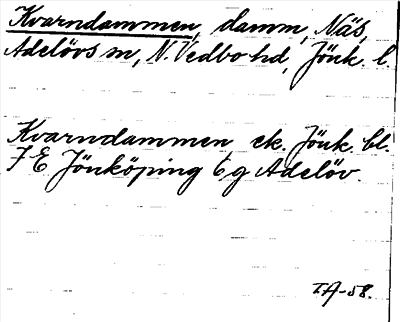 Kvarndammen, damm, Näs,
Adelövs sn, N. Vedbo hd, Jönk. l.
Kvarndammen ek. Jönk. bl.
7 E Jönköping 6 g Adelöv.
TA-58.